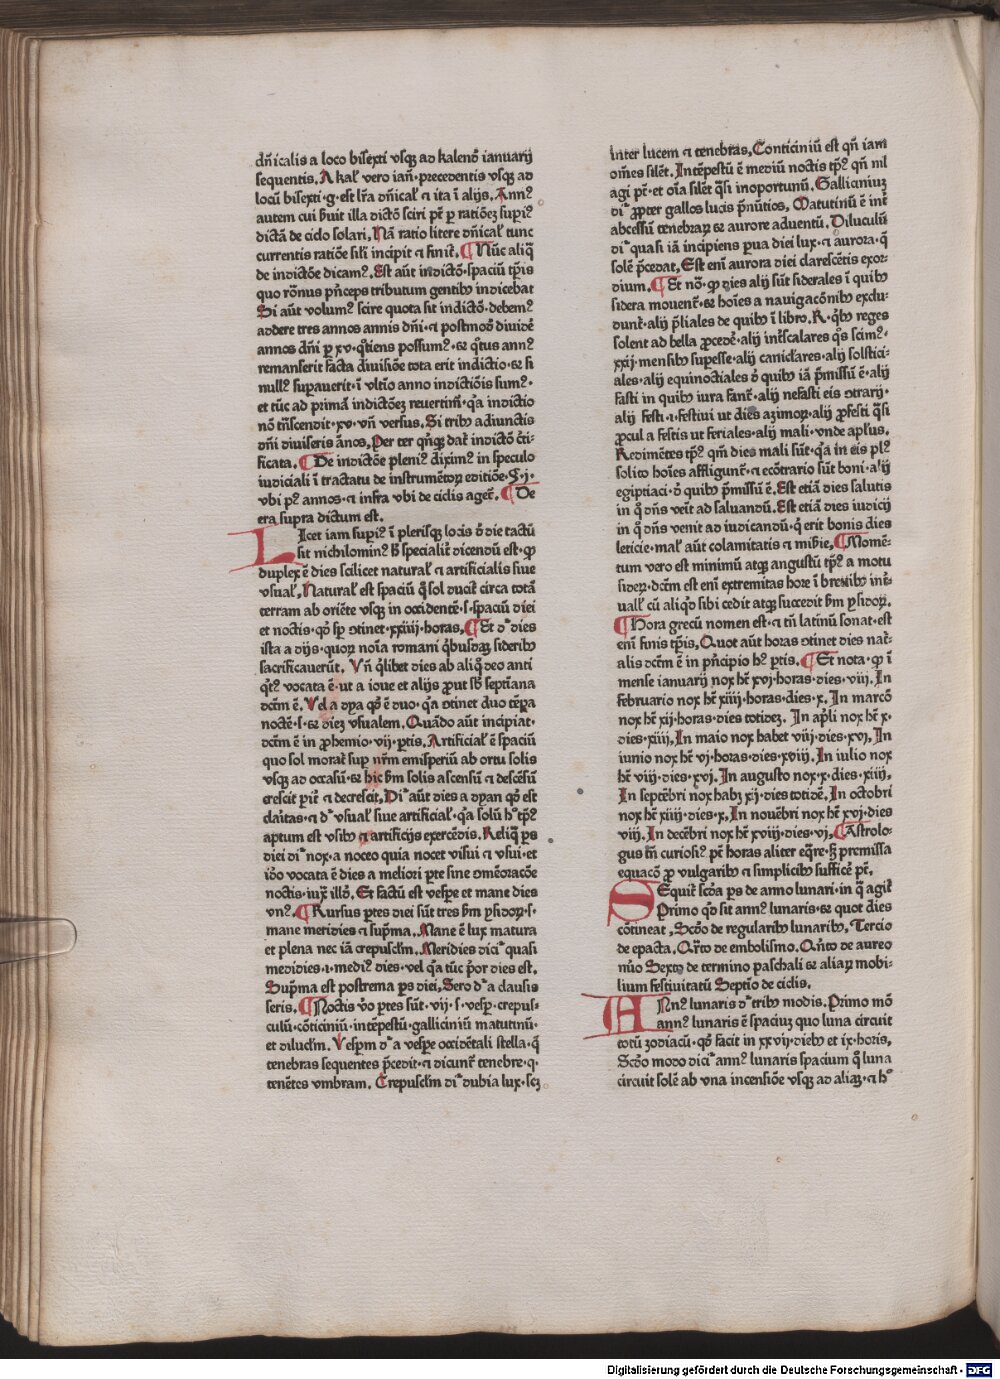 dn̄icalis a loco bisexti vsqꝫ ad kalend̄ ianuarij
sequentis. A kal̄ vero ian̄. precedentis vsqꝫ ad
locū bisexti. g. est lr̄a dn̄ical̄ ⁊ ita ī alijs. Annꝰ
autem cui ḡuit illa dictō sciri pt̄ ꝑ ratiōeꝫ supiꝰ
dictā de ciclo solari. Nā ratio litere dn̄ical̄ tunc
currentis ratiōe sil̄i incipit ⁊ finit̄. ¶ Nūc aliq̄
de indictōe dicamꝰ. Est aūt indictō. spaciū tp̄is
quo rōnus pn̄ceps tributum gentibꝫ indicebat
Si aūt volumꝰ scire quota sit indictō. debemꝰ
addere tres annos annis dn̄i. ⁊ postmodū diuidē
annos dn̄i ꝑ xv. qͦtiens possumꝰ. ⁊ qͦtus annꝰ
remanserit facta diuisiōe tota erit indictio. ⁊ si
nullꝰ supauerit. ī vltīo anno indictiōis sumꝰ.
et tūc ad primā indictōeꝫ reuertim̄. qͣa indictio
nō tn̄scendit. xv. vn̄ versus. Si tribꝫ adiunctis
dn̄i diuiseris ānos, Per ter qͥnqꝫ dat̄ indictō c̄ti-
ficata. ¶ De indictōe pleniꝰ diximꝰ in speculo
iudiciali ī tractatu de instrumētoꝝ editiōe. §. j.
vbi pꝰ annos. ⁊ infra vbi de ciclis aget̄. ¶ De
era supra dictum est.
LIcet iam supiꝰ ī plerisqꝫ locis ō die tactū
sit nichilominꝰ h̄ specialiꝰ dicendū est. ꝙ
duplex ē dies scilicet natural̄ ⁊ artificialis siue
vsual̄. Natural̄ est spaciū q̄ sol ducit̄ circa totā
terram ab oriēte vsqꝫ in occidentē. s. spaciū diei
et noctis. qd̄ sp̄ ꝯtinet. xxiiij. horas. ¶ Et dꝰ dies
ista a dijs. quoꝝ noīa romani qͥbusdaꝫ sideribꝫ
sacrificauerūt. Vn̄ qͥlibet dies ab aliqͦ deo anti
qͥtꝰ vocata ē. ut a ioue et alijs ꝓut sb̄ septīana
dc̄m ē. Vel a dya qd̄ ē duo. qͣa ꝯtinet duo tꝑa
noctē. s. ⁊ dieꝫ vsualem. Quādo aūt incipiat.
dc̄m ē in ꝓhemio. vij. ꝑtis. Artificial̄ ē spaciū
quo sol morat̄ sup nr̄m emisperiū ab ortu solis
vsqꝫ ad occasū. ⁊ hic s̄m solis ascensū ⁊ descēsū
crescit ꝑit̄ ⁊ decrescit. Diꝰ aūt dies a dyan qd̄ est
claritas. ⁊ dꝰ vsual̄ siue artificial̄. qͣa solū hͦ tp̄ꝰ
aptum est vsibꝫ ⁊ artificijs exercēdis. Reliq̄ ps
diei diꝰ nox. a noceo quia nocet visui ⁊ vsui. et
iō vocata ē dies a meliori ꝑte sine ꝯmēoracōe
noctis. iux̄ illd̄. Et factū est vespe et mane dies
vnꝰ. ¶ Rursus ꝑtes diei sūt tres s̄m ysidoꝝ. s.
mane meridies ⁊ sup̄ma. Mane ē lux matura
et plena nec iā crepusclīm. Meridies diciꝰ quasi
medidies. i. mediꝰ dies. vel qͣa tūc pͥor dies est.
Sup̄ma est postrema ps diei. Sero dꝰ a clausis
seris. ¶ Noctis v̄o ꝑtes sūt. vij. s. vesꝑ. crepus-
culū. cōticiniū. intēpestū. galliciniū matutinū.
et diluclm̄. Vesꝑm dꝰ a vespe occidētali stella. q̄
tenebras sequentes p̄cedit. ⁊ dicunt̄ tenebre. q.
tenētes vmbram. Crepusclm̄ diꝰ dubia lux. scꝫ
inter lucem ⁊ tenebras. Conticiniū est qn̄ iam
om̄es silēt. Intēpestū ē mediū noctis tp̄ꝰ. qn̄ nil
agi pt̄. et oīa silēt qͣsi inoportunū. Galliciniuꝫ
diꝰ ꝓpter gallos lucis p̄nūtios. Matutinū ē int̄
abcessū tenebraꝝ ⁊ aurore aduentū. Diluculū
diꝰ quasi iā incipiens ꝑua diei lux. ⁊ aurora. q̄
solē p̄cedat. Est enī aurora diei clarescētis exor-
dium. ¶ Et nō. ꝙ dies alij sūt siderales ī quibꝫ
sidera mouent̄. ⁊ hoīes a nauigacōnibꝫ exclu-
dunt̄. alij p̄liales de quibꝫ ī libro. R. qͥbꝫ reges
solent ad bella ꝓcedē. alij int̄scalares qͦs scimꝰ.
xxij. mensibꝫ supesse. alij canicl̄ares. alij solstici-
ales. alij equinoctiales ō quibꝫ iā p̄missū ē. alij
fasti in quibꝫ iura fant̄. alij nefasti eis ꝯtrarij.
alij festi. i. festiui ut dies azimoꝝ. alij ꝓfesti qͣsi
ꝓcul a festis ut feriales. alij mali. vnde apl̄us.
Redimētes tp̄ꝰ. qm̄ dies mali sūt. qͣa in eis plꝰ
solito hoīes affligunt̄. ⁊ ecōtrario sūt boni. alij
egiptiaci. ō quibꝫ p̄missū ē. Est etiā dies salutis
in qͦ dn̄s venit ad saluandū. Est etiā dies iudicij
in qͦ dn̄s venit ad iudicandū. q̄ erit bonis dies
leticie. mal̄ aūt calamitatis ⁊ misīe. ¶ Momē-
tum vero est minimū atqꝫ angustū tp̄ꝰ a motu
sideꝝ. dc̄m est enī extremitas hore ī breuibꝫ int̄-
uall̄ cū aliqd̄ sibi cedit atqꝫ succedit s̄m ysidoꝝ.
¶ Hora grecū nomen est. ⁊ tn̄ latinū sonat. est
enī finis tp̄is. Quot aūt horas ꝯtinet dies nat̄-
alis dc̄m ē in pn̄cipio hꝰ ꝑtis. ¶ Et nota. ꝙ ī
mense ianuarij nox hꝫ xvj. horas. dies. viij. In
februario nox hꝫ xiiij. horas. dies. x. In marcō
nox hꝫ xij. horas. dies totideꝫ. In apͥli nox hꝫ x.
dies. xiiij. In maio nox habet viij. dies. xvj. In
iunio nox hꝫ vj horas. dies. xviij. In iulio nox
hꝫ viij dies. xvj. In augusto nox. x. dies. xiiij.
In septēbri nox habꝫ xij. dies totidē. In octobri
nox hꝫ xiiij. dies. x. In nouēbri nox hꝫ xvj. dies
viij. In decēbri nox hꝫ xviij. dies. vj. ¶ Astrolo-
gus tn̄ curiosiꝰ pt̄ horas aliter eq̄re. sꝫ premissa
equacō ꝓ vulgaribꝫ ⁊ simplicibꝫ sufficē pt̄.
SEquit̄ scd̄a ps de anno lunari. in q̄ agit̄
Primo qd̄ sit annꝰ lunaris. ⁊ quot dies
cōtineat. Scd̄o de regularibꝫ lunaribꝫ. Tercio
de epacta. Qͣrto de embolismo. Qͥnto de aureo
nūo Sexto de termino paschali ⁊ aliaꝝ mobi-
lium festiuitatū Septīo de ciclis.
ANnꝰ lunaris dꝰ tribꝫ modis. Primo mō
annꝰ lunaris ē spaciuꝫ quo luna circuit
totū zodiacū. qd̄ facit in xxvij. diebꝫ et ix. horis.
Scd̄o modo diciꝰ annꝰ lunaris spacium q̄ luna
circuit solē ab vna incensiōe vsqꝫ ad aliaꝫ. ⁊ hͦ
Digitalisierung gefördert durch die Deutsche Forschungsgemeinschaft - DFG